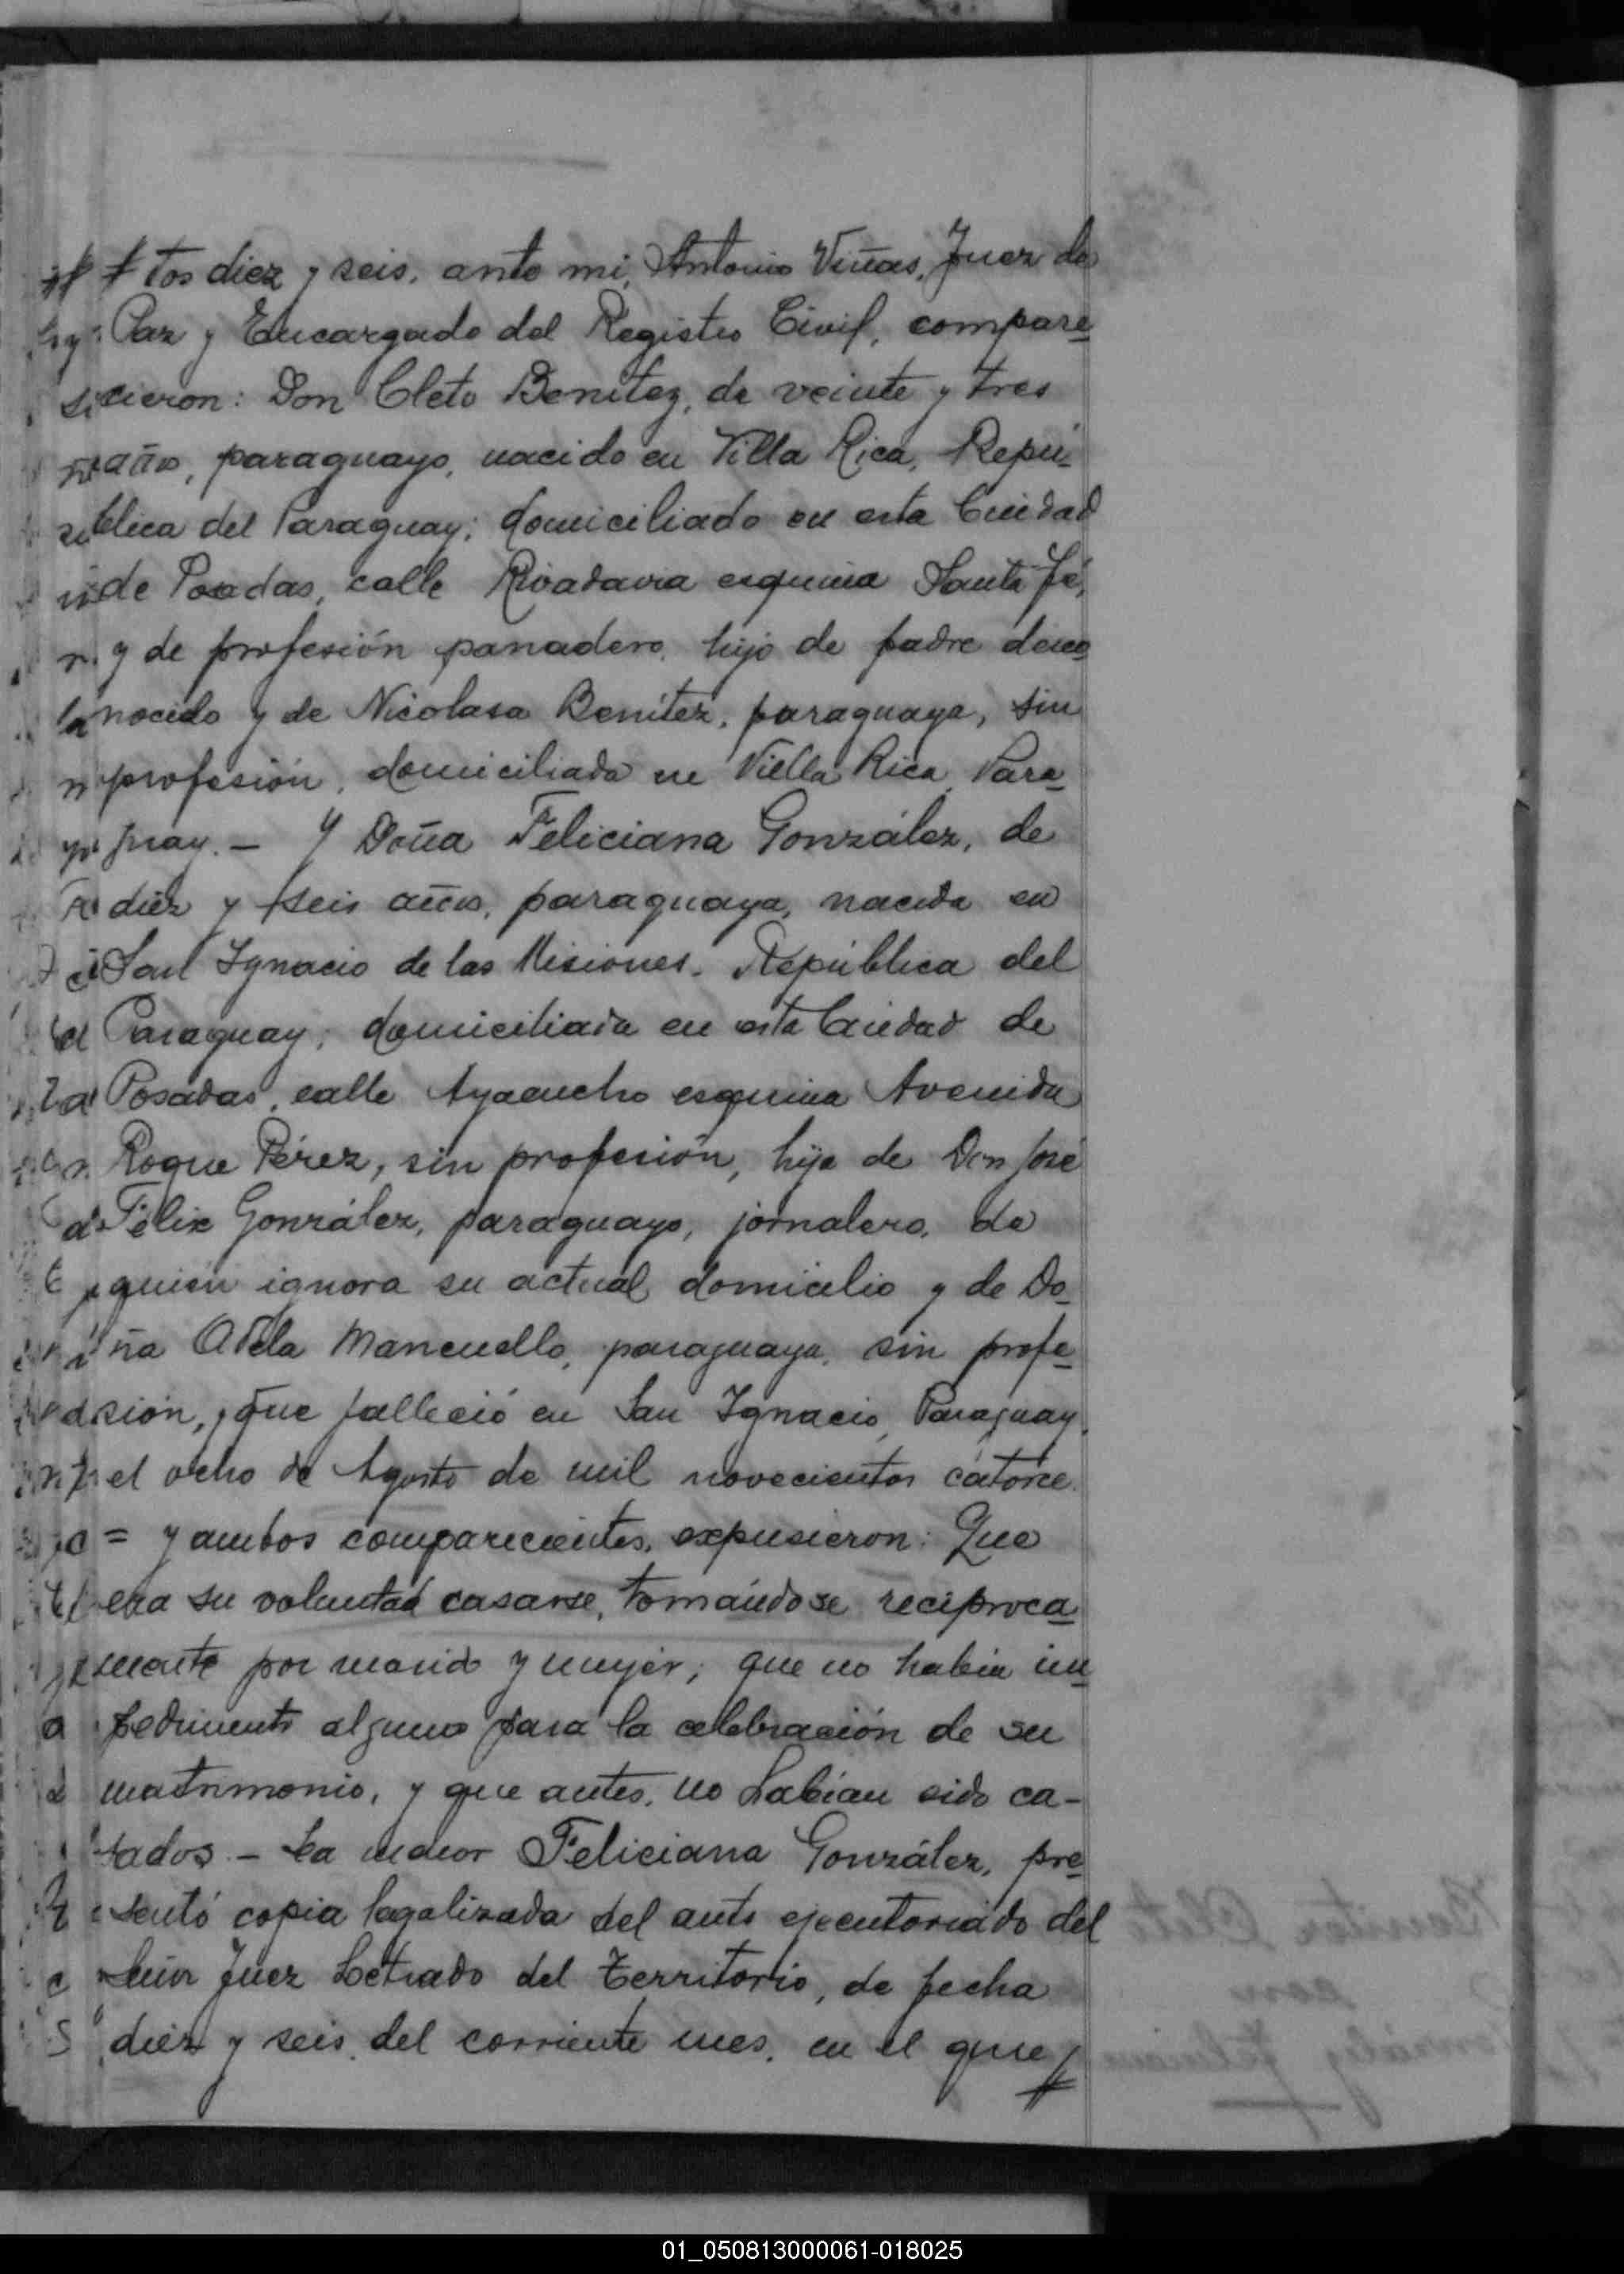 tos diez y seis, ante mi, Antonio Viñas, Juez de
Paz y Encargado del Registro Civil, compare
cieron: Don Cleto Benítez, de veinte y tres
años, paraguayo, nacido en Villa Rica, Repú-
blica del Paraguay; domiciliado en esta Ciudad
de Posadas, calle Rivadavia esquina Santa Fé,
y de profesión panadero, hijo de padre desco
nocido y de Nicolasa Benítez, paraguaya, sin
profesión, domiciliada en Villa Rica, Para-
guay. - Y Doña Feliciana González, de
diez y seis años, paraguaya, nacida en
San Ignacio de las Misiones. República del
Paraguay; domiciliada en esta Ciudad de
Posadas, calle Ayacucho esquina Avenida
Roque Pérez, sin profesión, hija de Don José
Félix González, paraguayo, jornalero, de
quien ignora su actual domicilio y de Do-
ña Adela Mancuello, paraguaya, sin profe-
sión, que falleció en San Ignacio, Paraguay,
el ocho de Agosto de mil novecientos catorce.
= y ambos comparecientes, expusieron: Que
era su voluntad casarse, tomándose reciproca
mente por marido y mujer; que no había im
pedimento alguno para la celebración de su
matrimonio, y que antes, no habían sido ca-
sados. - La menor Feliciana González, pre
sentó copia legalizada del auto ejecutoriado del
Señor Juez Letrado del Territorio, de fecha
diez y seis del corriente mes, en el que
Benitez Cleto
con
González Feliciana
01_050813000061-018025